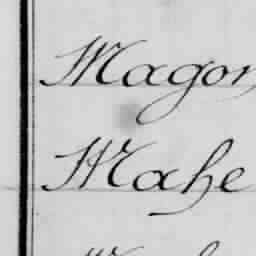 Magon
Mahe